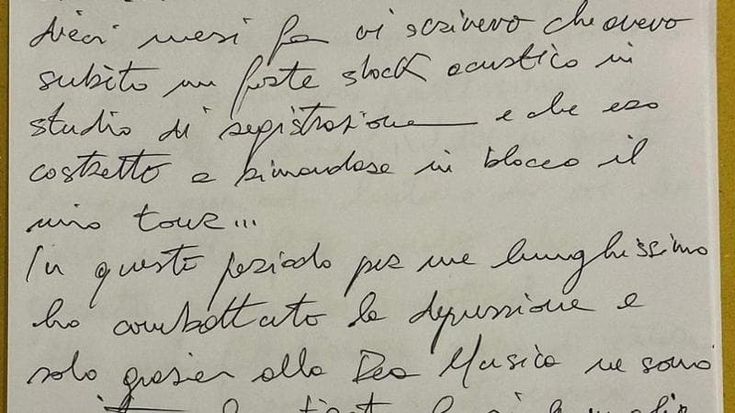 dieci mesi fa vi scrivevo che avevo
subito un forte shock acustico in
studio di registrazione e che ero
costretto a rimandare in blocco il
mio tour...
In questo periodo per me lunghissimo
ho combattuto la depressione e
solo grazie alla Dea Musica ne sono